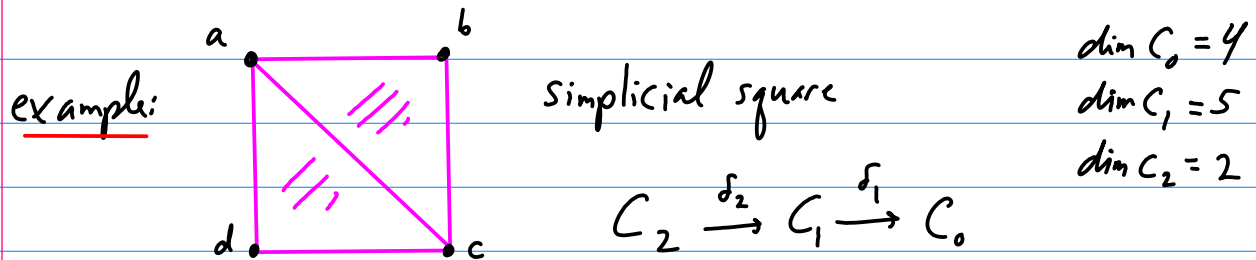 example:
a
b
d
c
simplicial square
C₂ —δ₂→ C₁ —δ₁→ C₀
dim C₀ = 4
dim C₁ = 5
dim C₂ = 2